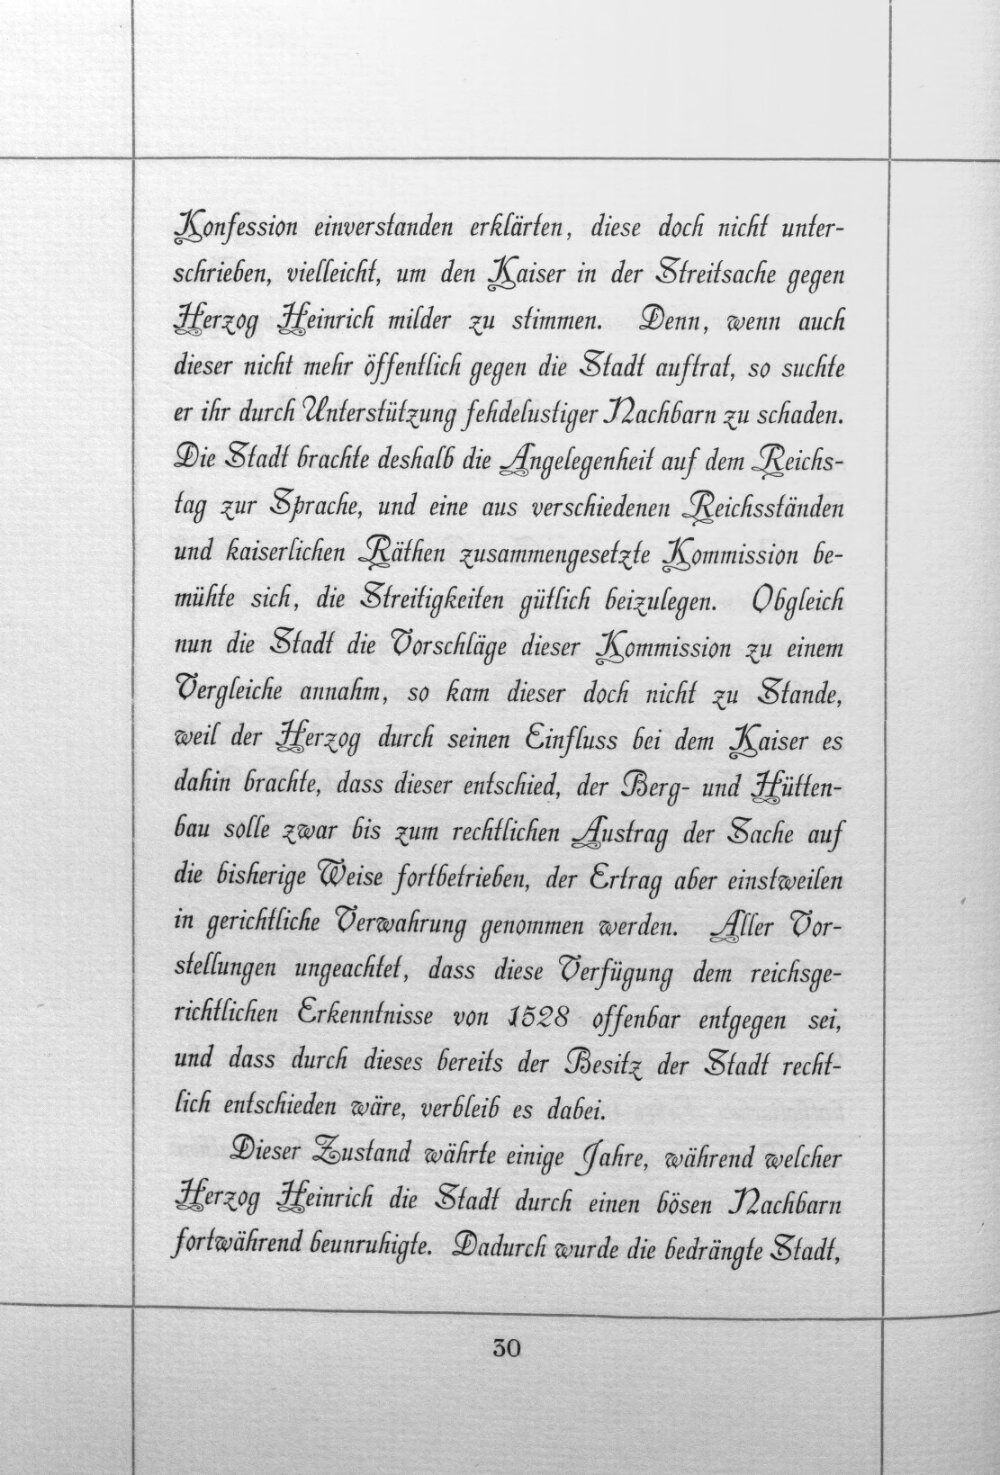 Konfession einverstanden erklärten, diese doch nicht unter-
schrieben, vielleicht, um den Kaiser in der Streitsache gegen
Herzog Heinrich milder zu stimmen. Denn, wenn auch
dieser nicht mehr öffentlich gegen die Stadt auftrat, so suchte
er ihr durch Unterstützung fehdelustiger Nachbarn zu schaden.
Die Stadt brachte deshalb die Angelegenheit auf dem Reichs-
tag zur Sprache, und eine aus verschiedenen Reichsständen
und kaiserlichen Räthen zusammengesetzte Kommission be-
mühte sich, die Streitigkeiten gütlich beizulegen. Obgleich
nun die Stadt die Vorschläge dieser Kommission zu einem
Vergleiche annahm, so kam dieser doch nicht zu Stande,
weil der Herzog durch seinen Einfluss bei dem Kaiser es
dahin brachte, dass dieser entschied, der Berg- und Hütten-
bau solle zwar bis zum rechtlichen Austrag der Sache auf
die bisherige Weise fortbetrieben, der Ertrag aber einstweilen
in gerichtliche Verwahrung genommen werden. Aller Vor-
stellungen ungeachtet, dass diese Verfügung dem reichsge-
richtlichen Erkenntnisse von 1528 offenbar entgegen sei,
und dass durch dieses bereits der Besitz der Stadt recht-
lich entschieden wäre, verbleib es dabei.
Dieser Zustand währte einige Jahre, während welcher
Herzog Heinrich die Stadt durch einen bösen Nachbarn
fortwährend beunruhigte. Dadurch wurde die bedrängte Stadt,
30